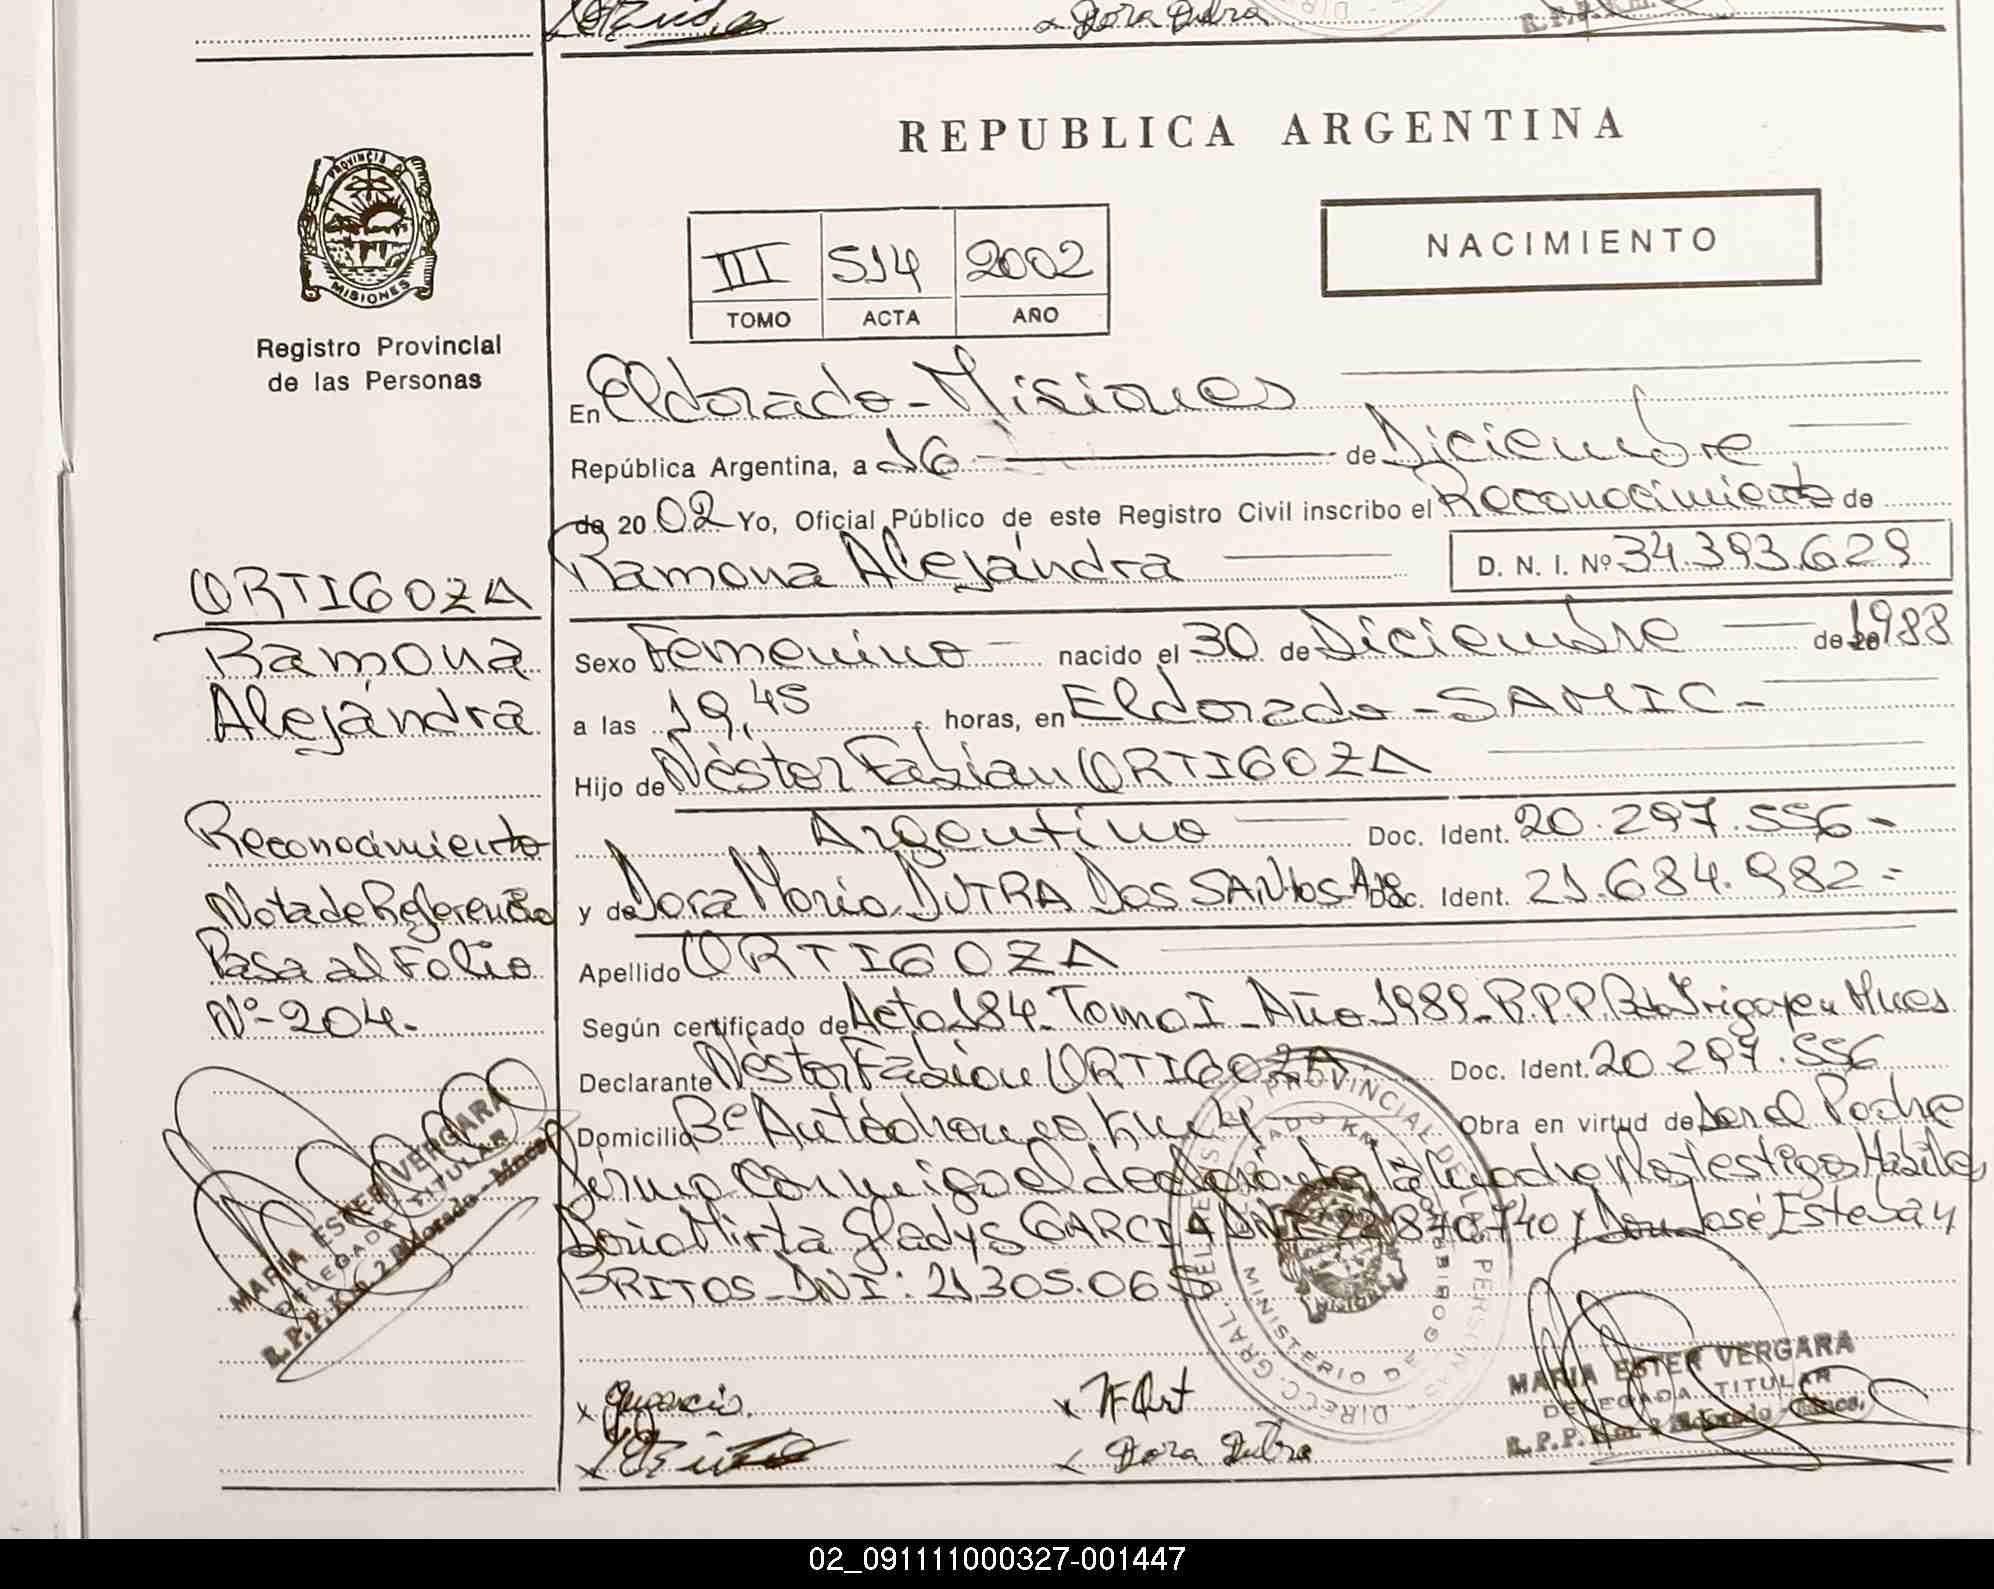 Dora Dutra
REPUBLICA ARGENTINA
PROVINCIA DE
MISIONES
Registro Provincial
de las Personas
NACIMIENTO
III 514 2002
TOMO ACTA AÑO
En Eldorado - Misiones
República Argentina, a 16 de Diciembre
de 20 02 Yo, Oficial Público de este Registro Civil inscribo el Reconocimiento de
Ramona Alejandra D. N. I. Nº 34.393.629
ORTIGOZA
Ramona
Alejandra
Sexo Femenino - nacido el 30 de Diciembre de 20 1988
a las 19,45 horas, en Eldorado - SAMIC -
Hijo de Néstor Fabian ORTIGOZA
Argentino Doc. Ident. 20.297.556 -
y de Dora Maria DUTRA DOS SANTOS Arg Doc. Ident. 21.684.982 -
Apellido ORTIGOZA
Según certificado de Acta 184 - Tomo I - Año 1989 - R.P.P. Bdo Irigoyen Mnes
Declarante Néstor Fabian ORTIGOZA Doc. Ident. 20.297.556
Domicilio Bº Km 4 Obra en virtud de ser el Padre
Firma conmigo el declarante, la madre y los testigos Hábiles
Doña Mirta Gladys GARCIA DNI 22.870740 y Don José Esteban
BRITOS - DNI: 21.305.065
Reconocimiento
Nota de Referencia
Pasa al Folio
Nº - 204.
MARIA ESTER VERGARA
DELEGADA TITULAR
R.P.P. Km. 2 Eldorado - Mnes.
DIREC. GRAL. DEL REGISTRO PROVINCIAL DE LAS PERSONAS
MINISTERIO DE GOBIERNO
MISIONES
x N F Ort
x Dora Dutra
MARIA ESTER VERGARA
DELEGADA TITULAR
R.P.P. Km. 2 Eldorado - Mnes.
02_091111000327-001447